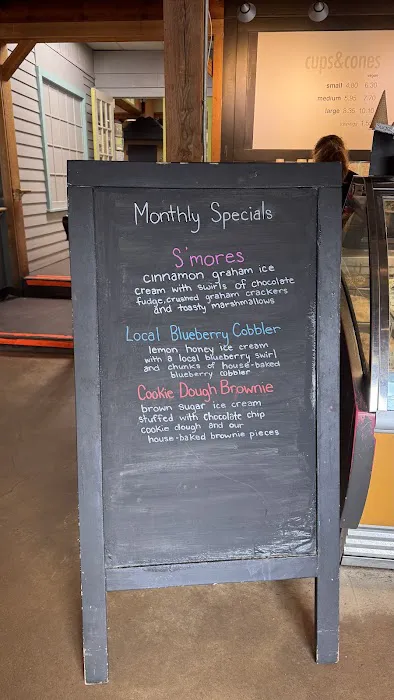 cups&cones
small 4.80 6.30
medium 5.95 7.20
large 8.35 10.10
Monthly Specials
S'mores
cinnamon graham ice
cream with swirls of chocolate
fudge, crushed graham crackers
and toasty marshmallows
Local Blueberry Cobbler
lemon honey ice cream
with a local blueberry swirl
and chunks of house-baked
blueberry cobbler
Cookie Dough Brownie
brown sugar ice cream
stuffed with chocolate chip
cookie dough and our
house-baked brownie pieces